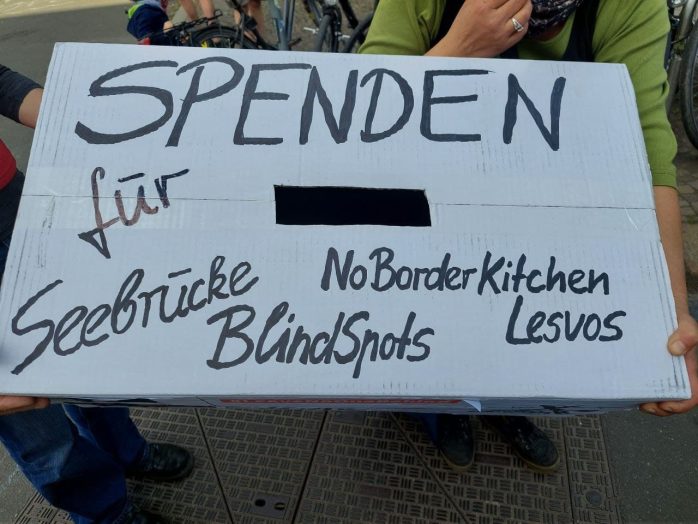 SPENDEN
für
Seebrücke
NoBorderKitchen
Lesvos
BlindSpots